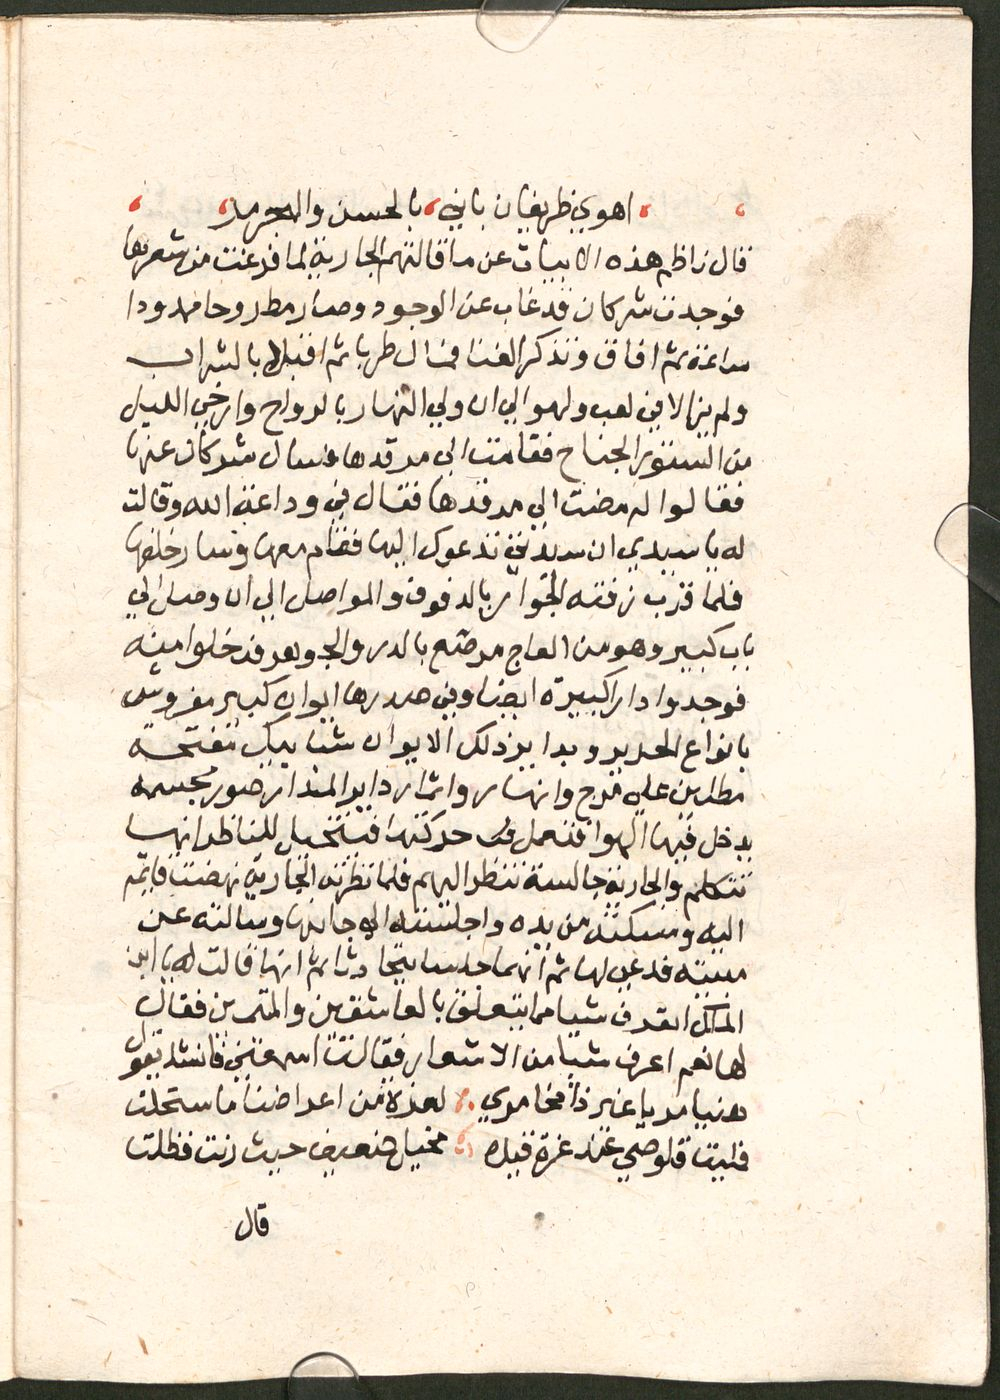 اهوي ظريفان باني بالحسن والمجر مد
قال ناظم هذه الابيات عن ما قالتهم الجارية لما فرغت من شعرها
فوجدت شركان قد غاب عن الوجود وصار مطروحا ممدودا
ساعة ثم افاق وتذكر الغنا فمال طربا ثم اقبلا بالشراب
ولم يزالا في لعب ولهو الي ان ولي النهار بالرواح وارخي الليل
من الستور الجناح فقامت الي مرقدها فسال شركان عنها
فقالوا له مضت الي مرقدها فقال في وداعة الله وقالت
له يا سيدي ان سيدتي تدعوك اليها فقام معها وسار خلفها
فلما قرب زفته الجوار بالدفوف والمواصل الي ان وصل الي
باب كبير وهو من العاج مرصع بالدر والجوهر فدخلوا منه
فوجدوا دارا كبيرة ايضا وفي صدرها ايوان كبير مفروش
بانواع الحرير وبداير ذلك الايوان شبابيك مفتحة
مطلين علي مرج وانهار واشجار داير المدار صور مجسمه
يدخل فيها الهوا فتعمل في حركتها فيتخيل للناظر انها
تتكلم والجارية جالسة تنظر اليهم فلما نظرته الجارية نهضت قايمه
اليه ومسكته من يده واجلسته الي جانبها وسالته عن
مبيته فدعي لها ثم انهما جلسا يتحادثا ثم انها قالت له يا ابن
الملك اتعرف شيا مما يتعلق بالعاشقين والمتيمين فقال
لها نعم اعرف شيا من الاشعار فقالت اسمعني فانشد يقول
هنيا مريا غير ذا مخامري لعزة من اعراضنا ما ستحلت
فليت قلوصي عند عزة قيله بحبل ضعيف حيث زنت فظلت
قال